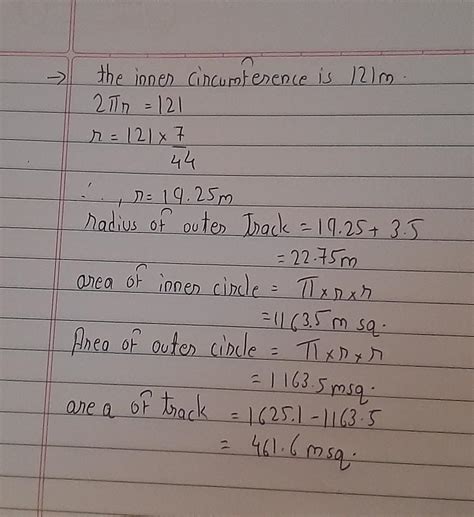 → the inner circumference is 121m.
2πr = 121
r = 121 × 7/44
∴, r = 19.25m
radius of outer Track = 19.25 + 3.5
= 22.75m
area of inner circle = π×r×r
= 1163.5 m sq.
Area of outer circle = π×r×r
= 1163.5 msq.
area of track = 1625.1 - 1163.5
= 461.6 msq.